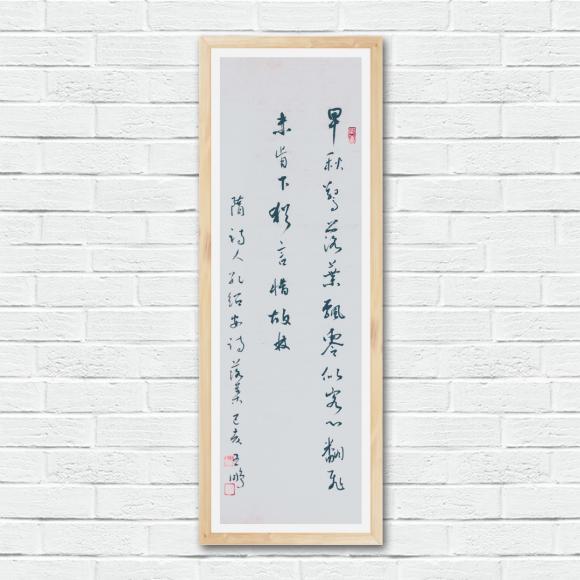 早秋驚落葉飄零似客心翻飛
未肯下猶言惜故林
隋詩人孔紹安詩落葉己亥鵬